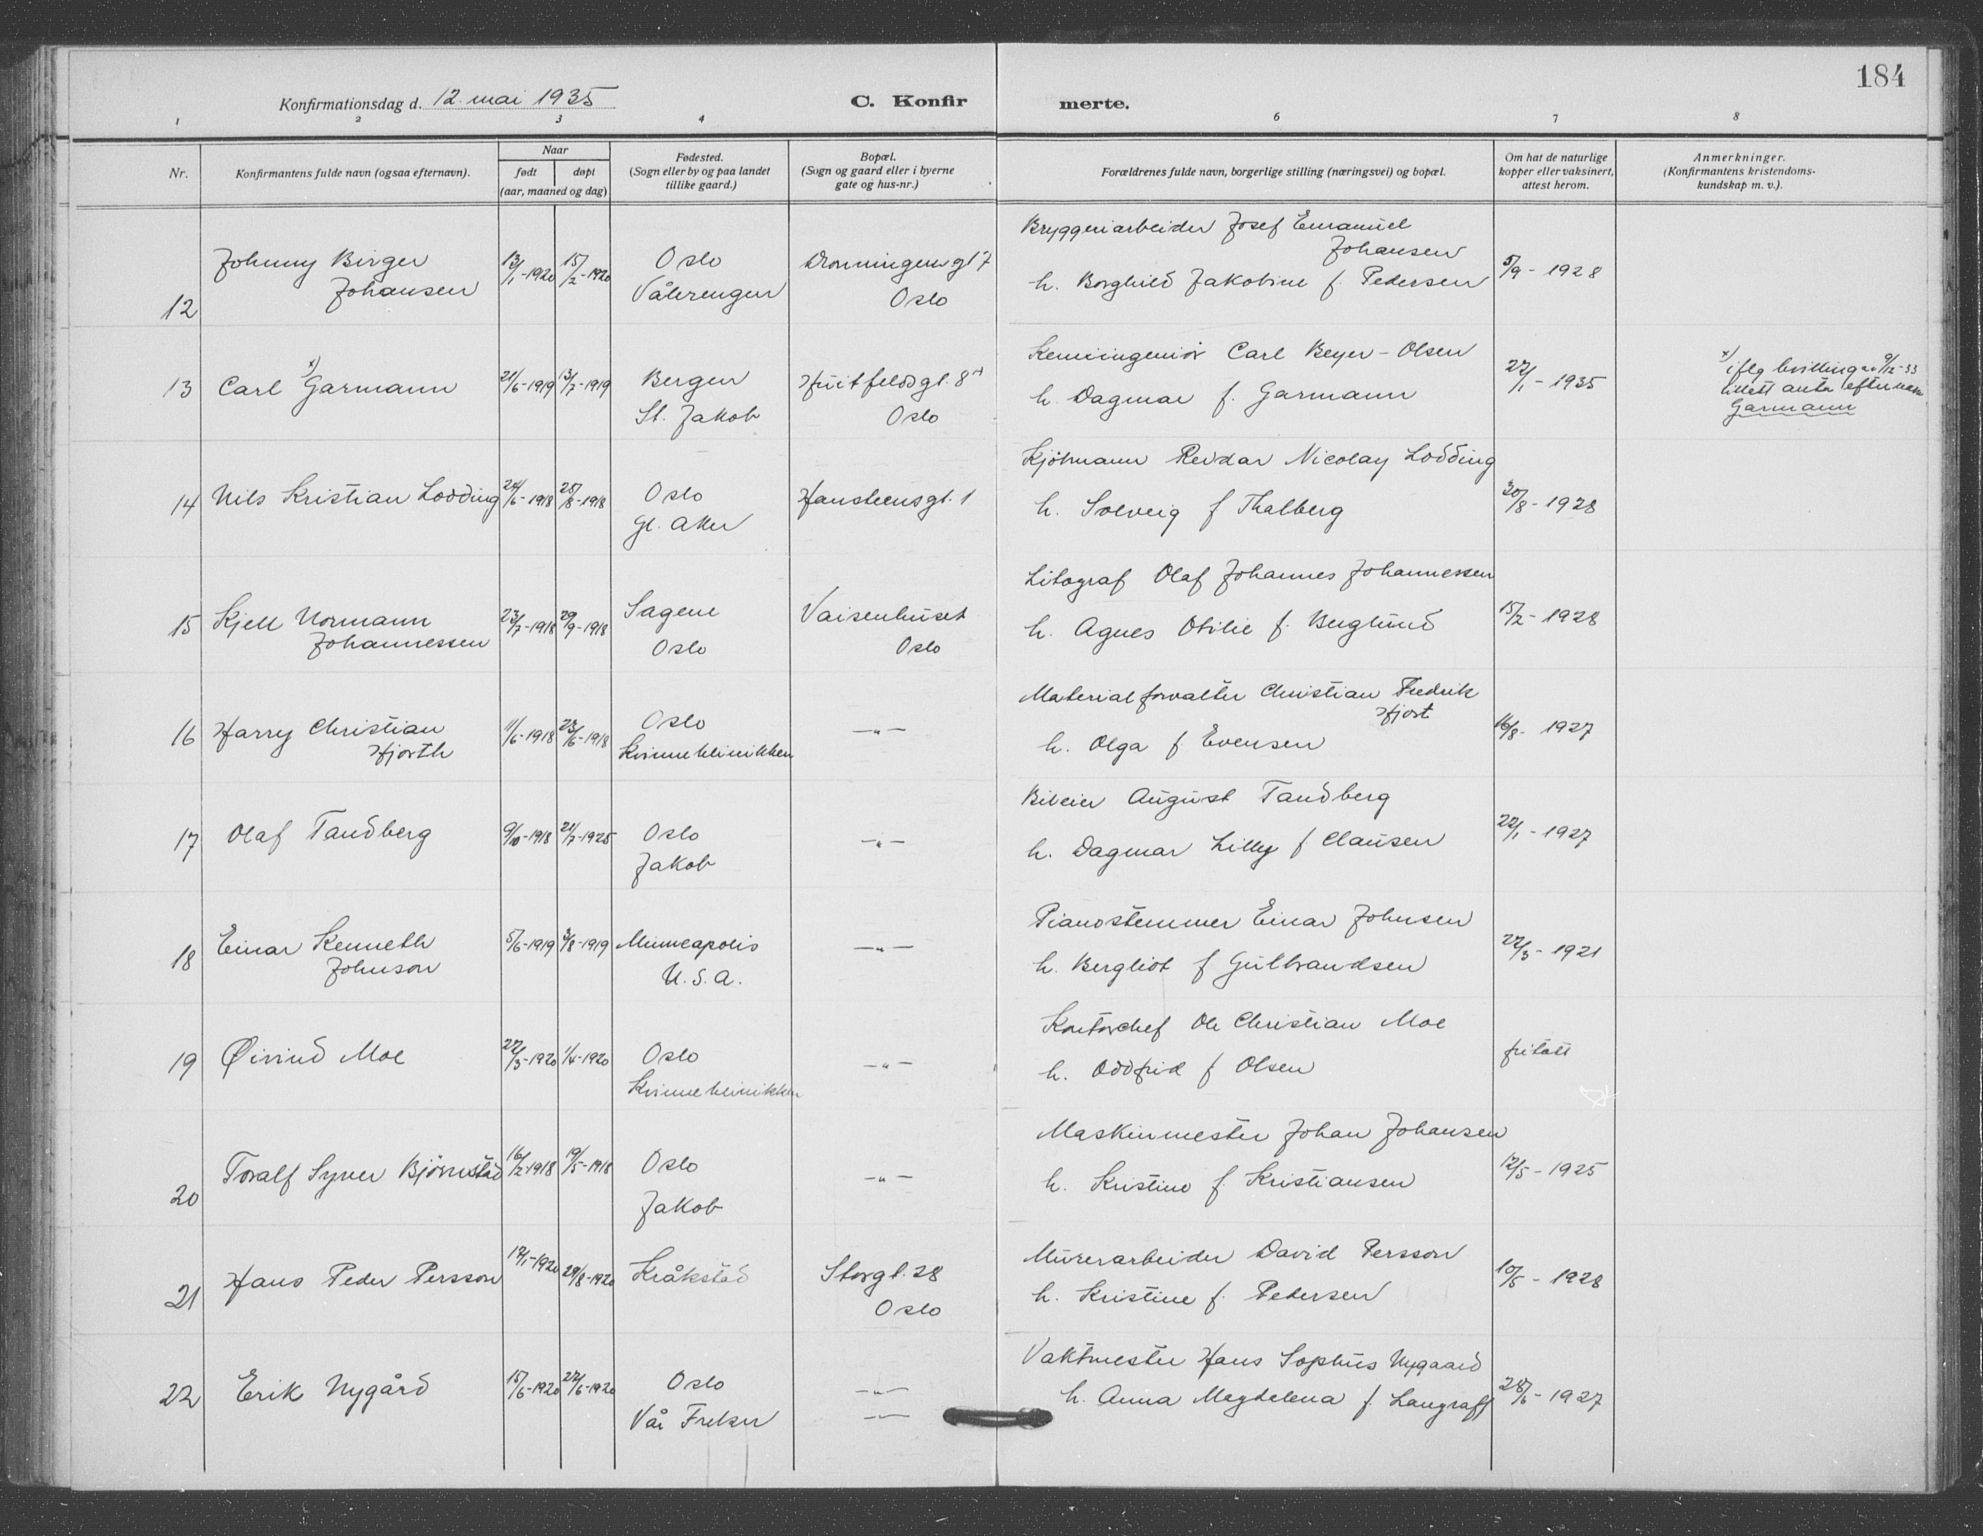 184
Konfirmationsdag d. 12. mai 1935
C. Konfir merte.
1 2 3 4 6 7 8
Nr.
Konfirmantens fulde navn (ogsaa efternavn).
Naar
født døpt
(aar, maaned og dag)
Fødested.
(Sogn eller by og paa landet
tillike gaard.)
Bopæl.
(Sogn og gaard eller i byerne
gate og hus-nr.)
Forældrenes fulde navn, borgerlige stilling (næringsvei) og bopæl.
Om hat de naturlige
kopper eller vaksinert,
attest herom.
Anmerkninger.
(Konfirmantens kristendoms-
kundskap m. v.).
12
Johnny Birger
Johansen
13/1-1920
15/2-1920
Oslo
Vålerengen
Dronningensgt 7
Oslo
Bryggeriarbeider Josef Emanuel
Johansen
h. Borghild Jakobine f. Pedersen
5/9 - 1928
13
x)
Carl Garmann
21/6-1919
13/7-1919
Bergen
St. Jakob
Huitfeldsgt. 8
Oslo
Kemiingeniør Carl Beyer-Olsen
h. Dagmar f. Garmann
22/1 - 1935
x)
iflg bevilling av 9/12-33
tillatt anta efternavn
Garmann
14
Nils Kristian Lodding
24/6-1918
25/8-1918
Oslo
Gl. Aker
Hansteensgt. 1
Kjöbmann Reidar Nicolay Lodding
h. Solveig f Thalberg
30/8 - 1928
15
Kjell Normann
Johannessen
23/7-1918
29/9-1918
Sagene
Oslo
Vaisenhuset
Oslo
Litograf Olaf Johannes Johannessen
h. Agnes Otilie f. Berglund
15/2 - 1928
16
Harry Christian
Hjorth
11/6-1918
23/6-1918
Oslo
Kvinneklinikken
-"-
Materialforvalter Christian Fredrik
Hjort
h. Olga f Evensen
16/8 - 1927
17
Olaf Tandberg
9/10-1918
21/7-1925
Oslo
Jakob
-"-
Bileier August Tandberg
h. Dagmar Lilly f Clausen
22/1 - 1927
18
Einar Kenneth
Johnson
5/6-1919
3/8-1919
Minneapolis
U.S.A.
-"-
Pianostemmer Einar Johnsen
h. Bergliot f Gulbrandsen
22/3 - 1921
19
Øivind Moe
22/3-1920
1/4-1920
Oslo
Kvinneklinikken
-"-
Kontorchef Ole Christian Moe
h. Oddfrid f Olsen
fritatt
20
Toralf Syver Bjørnstad
16/2-1918
19/5-1918
Oslo
Jakob
-"-
Maskinmester Johan Johansen
h. Kristine f. Kristiansen
12/5 - 1925
21
Hans Peder Persson
12/1-1920
29/8-1920
Kråkstad
Storgt. 28
Oslo
Murerarbeider David Persson
h. Kristine f. Pedersen
10/5 - 1928
22
Erik Nygård
15/6-1920
22/6-1920
Oslo
Vår Frelser
-"-
-"-
Vaktmester Hans Sophus Nygaard
h. Anna Magdelena f. Langraff
28/6 - 1927